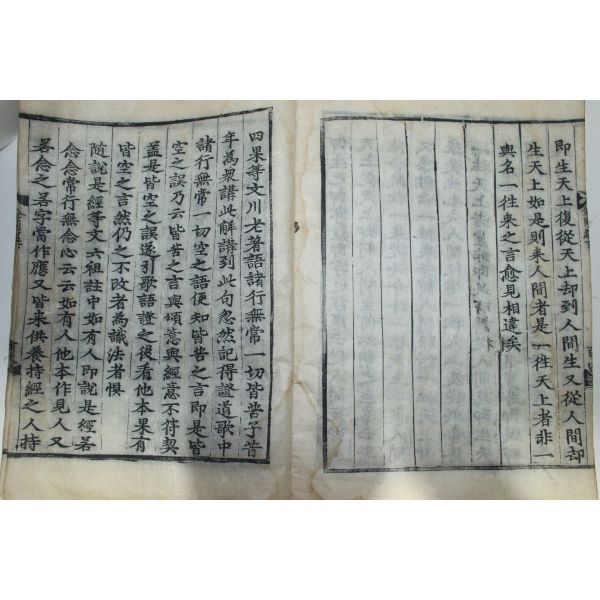 即生天上復從天上却到人間生又從人間却
生天上如是則来人間者是一徃天上者非一
與名一徃来之言愈見相違矣
四果等文川老著語諸行無常一切皆苦予昔
年為衆講此解講到此句忽然記得證道歌中
諸行無常一切空之語便知皆苦之言即是皆
空之誤乃云皆苦之言與頌意與經意不符契
盖是皆空之誤遂引歌語證之後看他本果有
皆空之言然仍之不改者為識法者懼
隨說是經等文六祖註中如有人即說是經若
念念常行無念心云云如有人他本作見人又
若念之若字當作應又皆来供養持經之人持